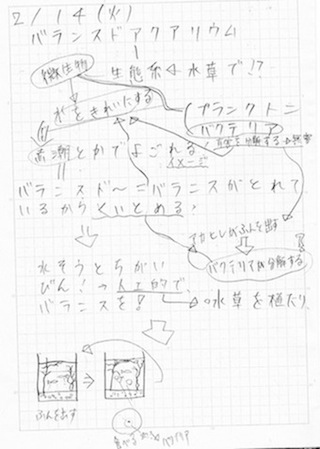 2/14(火)
バランスドアクアリウム
生態系は水草で!?
微生物
水をきれいにする
プランクトン
バクテリア
赤潮とかでよごれる
イメージ
を分解する
バランスド〜=バランスがとれて
いるから
メカとしがふんを出す
バクテリアが分解する
水そうとちがい
びん!→人工的で、
バランスを!
水草を植たり
ふんを出す